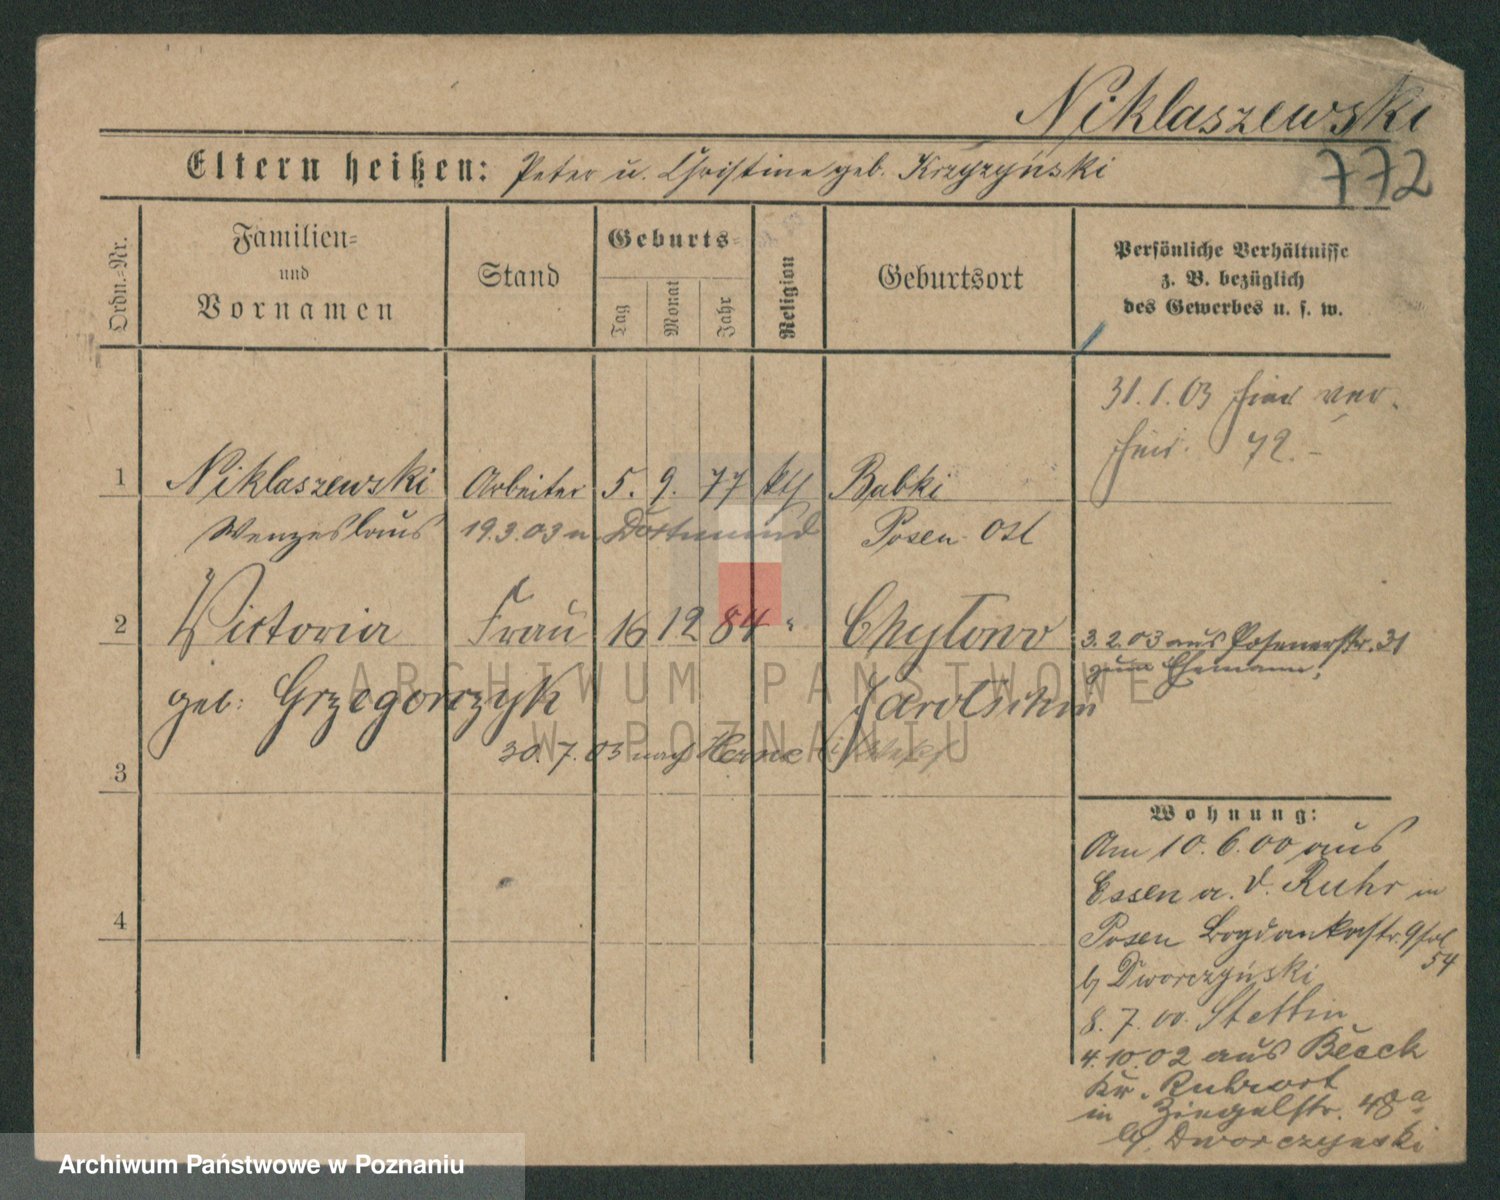 Niklaszewski
772
Eltern heißen: Peter u. Christine geb. Krzyzyński
Ordn.-Nr.
Familien-
und
Vornamen
Stand
Geburts-
Tag
Monat
Jahr
Religion
Geburtsort
Persönliche Verhältnisse
z. B. bezüglich
des Gewerbes u. s. w.
31.1.03 hier ver-
heir. 72.-
1 Niklaszewski Arbeiter 5. 9. 77 kth Babki
Wenzeslaus 19.3.03 n Dortmund Posen Ost
2 Victoria Frau 16 12 84 " Chytowo 3.2.03 aus Posenerstr. 31
zum Ehemann,
geb: Grzegorczyk Jarotschin
30.7.03 nach Herne i/Westf
3
4
Wohnung:
Am 10.6.00 aus
Essen a. d. Ruhr in
Posen Bogdankastr. 9
54
b/ Dworczyński
8.7.00. Stettin
4.10.02 aus Beeck
Kr. Ruhrort
in Ziegelstr. 48a
b/ Dworczynski
ARCHIWUM PAŃSTWOWE
W POZNANIU
Archiwum Państwowe w Poznaniu